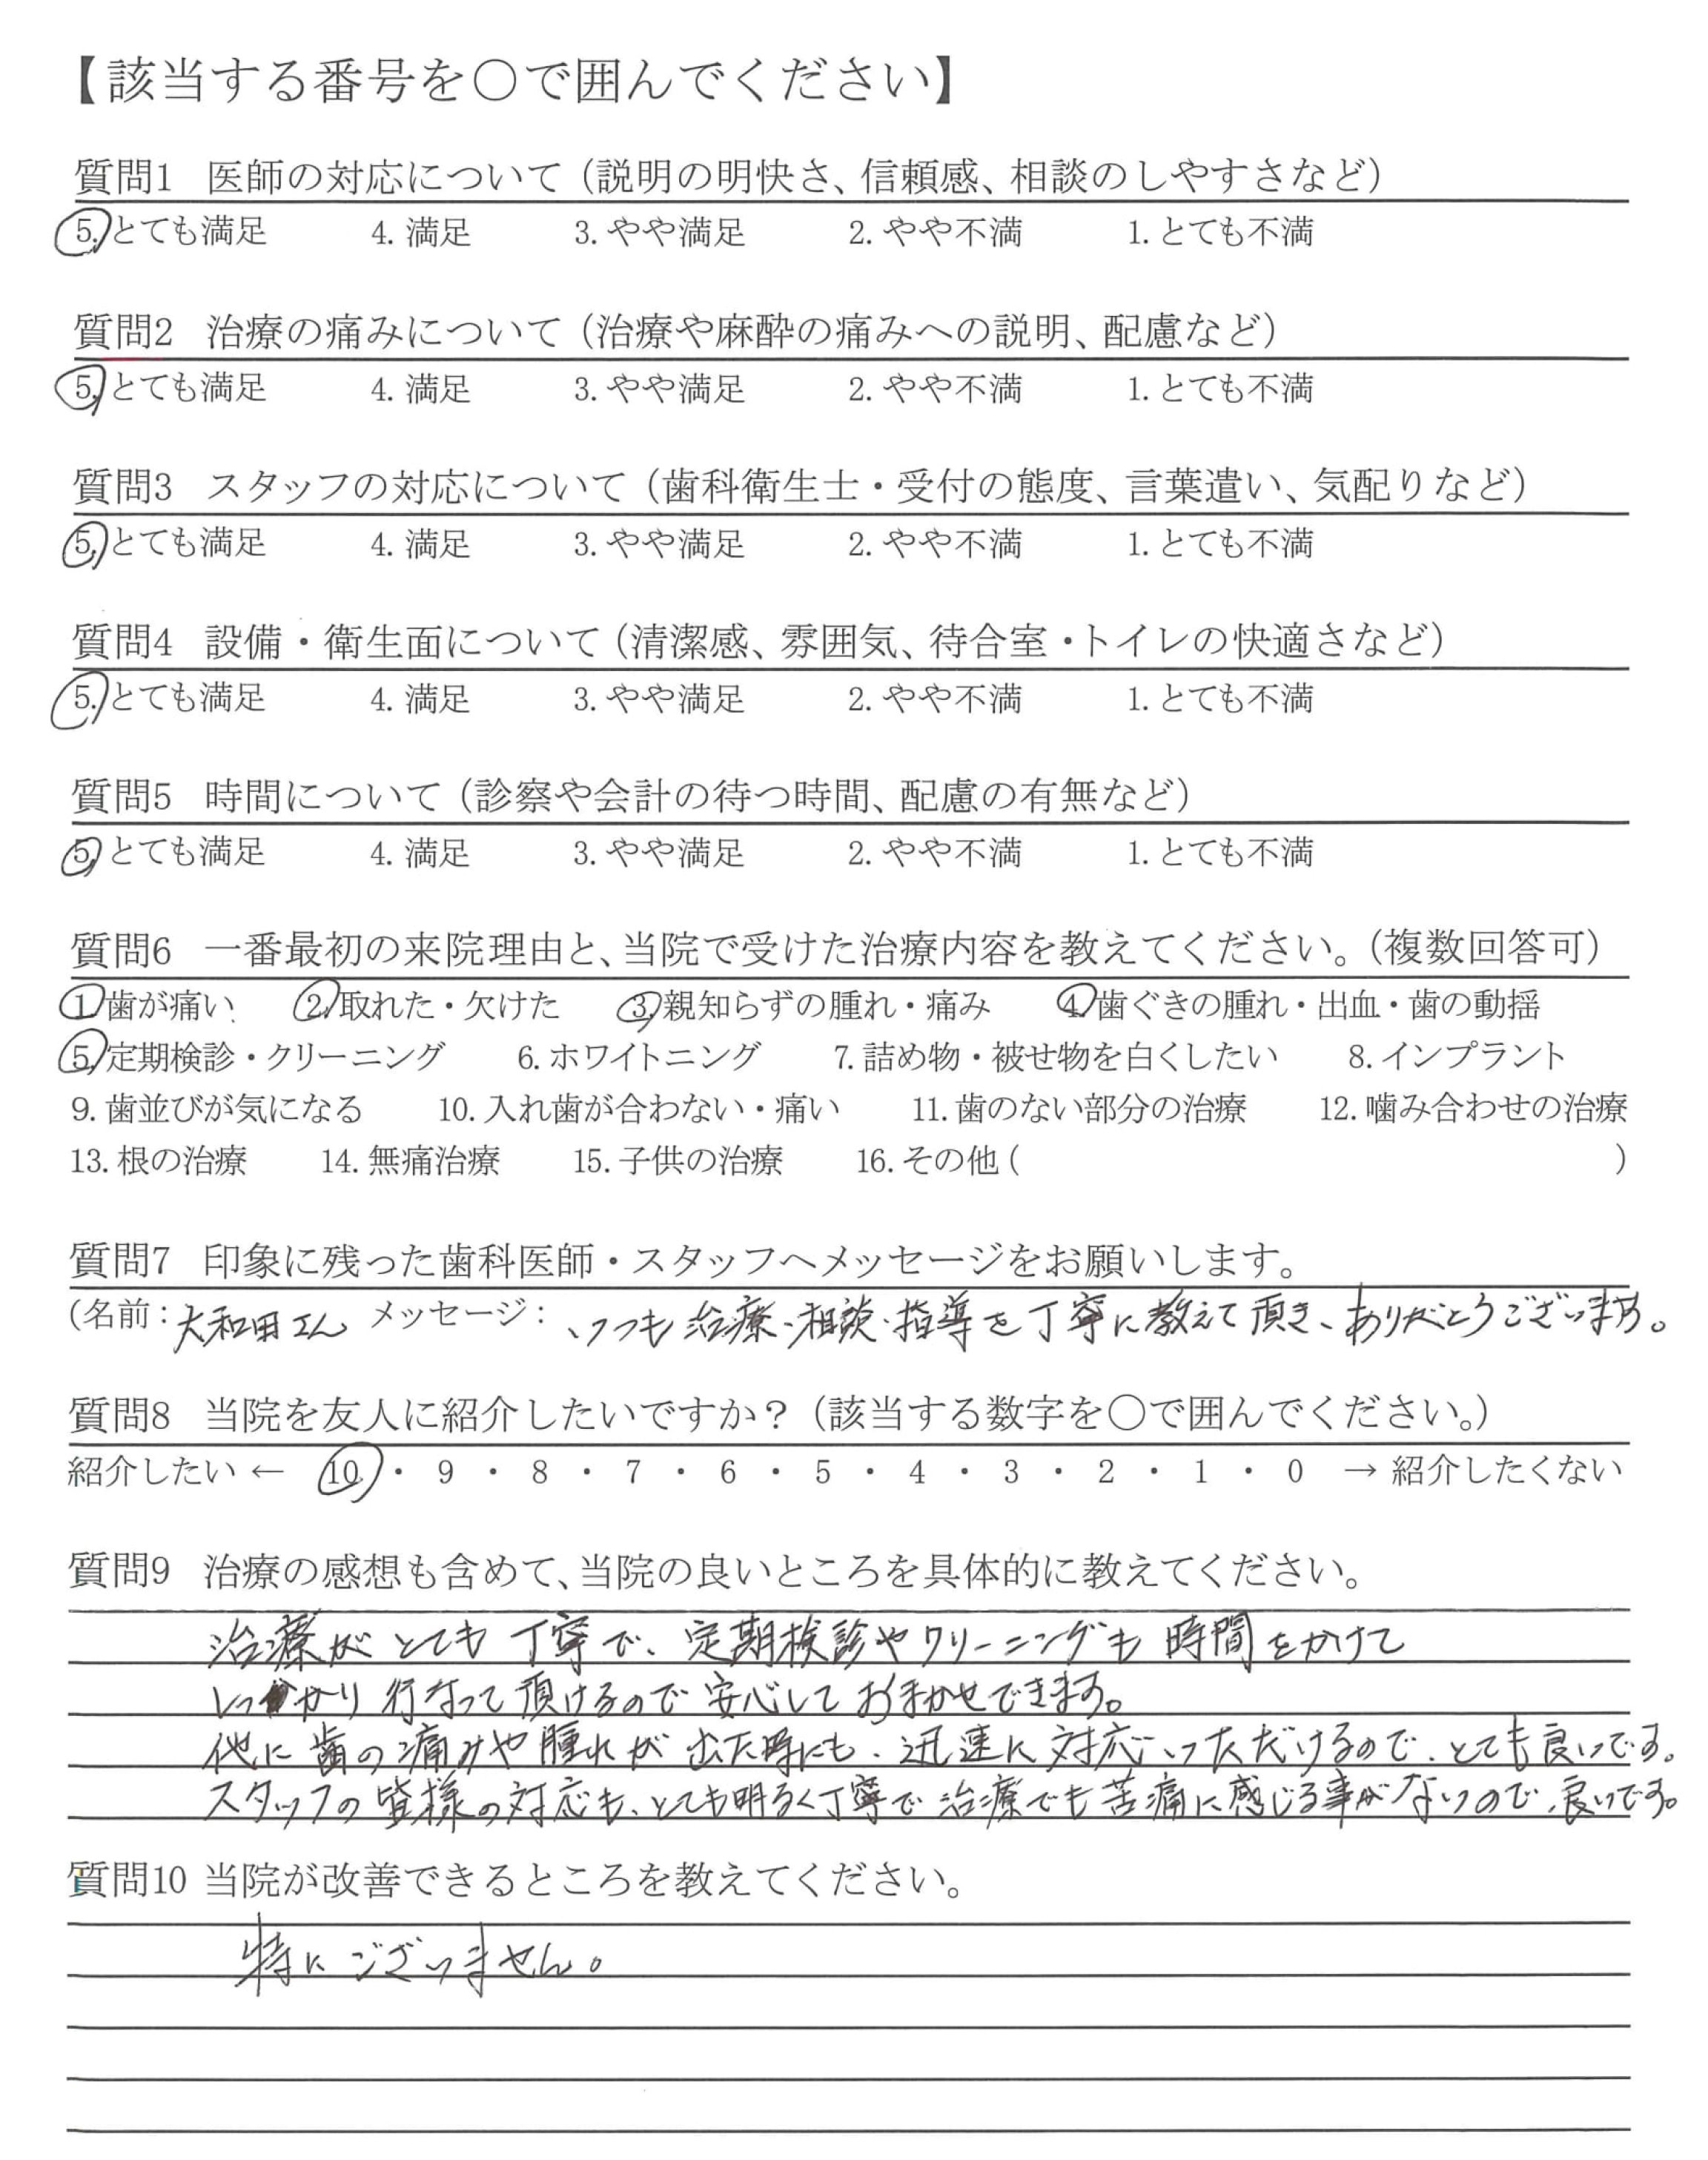 【該当する番号を○で囲んでください】
質問1 医師の対応について（説明の明快さ、信頼感、相談のしやすさなど）
5. とても満足 4. 満足 3. やや満足 2. やや不満 1. とても不満
質問2 治療の痛みについて（治療や麻酔の痛みへの説明、配慮など）
5. とても満足 4. 満足 3. やや満足 2. やや不満 1. とても不満
質問3 スタッフの対応について（歯科衛生士・受付の態度、言葉遣い、気配りなど）
5. とても満足 4. 満足 3. やや満足 2. やや不満 1. とても不満
質問4 設備・衛生面について（清潔感、雰囲気、待合室・トイレの快適さなど）
5. とても満足 4. 満足 3. やや満足 2. やや不満 1. とても不満
質問5 時間について（診察や会計の待つ時間、配慮の有無など）
5. とても満足 4. 満足 3. やや満足 2. やや不満 1. とても不満
質問6 一番最初の来院理由と、当院で受けた治療内容を教えてください。（複数回答可）
1. 歯が痛い 2. 取れた・欠けた 3. 親知らずの腫れ・痛み 4. 歯ぐきの腫れ・出血・歯の動揺
5. 定期検診・クリーニング 6. ホワイトニング 7. 詰め物・被せ物を白くしたい 8. インプラント
9. 歯並びが気になる 10. 入れ歯が合わない・痛い 11. 歯のない部分の治療 12. 噛み合わせの治療
13. 根の治療 14. 無痛治療 15. 子供の治療 16. その他（ ）
質問7 印象に残った歯科医師・スタッフへメッセージをお願いします。
（名前：大和田さん メッセージ：いつも治療・相談・指導を丁寧に教えて頂き、ありがとうございます。
質問8 当院を友人に紹介したいですか？（該当する数字を○で囲んでください。）
紹介したい ← 10 ・ 9 ・ 8 ・ 7 ・ 6 ・ 5 ・ 4 ・ 3 ・ 2 ・ 1 ・ 0 → 紹介したくない
質問9 治療の感想も含めて、当院の良いところを具体的に教えてください。
治療がとても丁寧で、定期検診やクリーニングも時間をかけて
しっかり行なって頂けるので安心しておまかせできます。
他に歯の痛みや腫れが出た時にも、迅速に対応いただけるので、とても良いです。
スタッフの皆様の対応も、とても明るく丁寧で治療でも苦痛に感じる事がないので、良いです。
質問10 当院が改善できるところを教えてください。
特にございません。